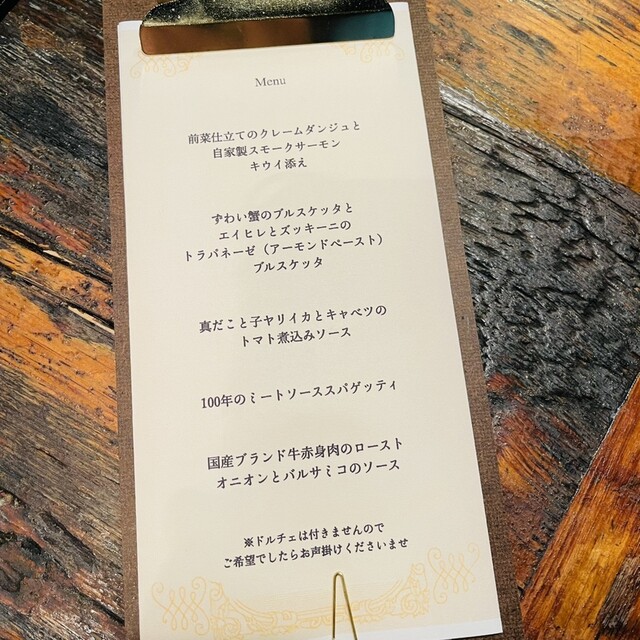 Menu
前菜仕立てのクレームダンジュと
自家製スモークサーモン
キウイ添え
ずわい蟹のブルスケッタと
エイヒレとズッキーニの
トラパネーゼ（アーモンドペースト）
ブルスケッタ
真だこと子ヤリイカとキャベツの
トマト煮込みソース
100年のミートソーススパゲッティ
国産ブランド牛赤身肉のロースト
オニオンとバルサミコのソース
※ドルチェは付きませんので
ご希望でしたらお声掛けくださいませ